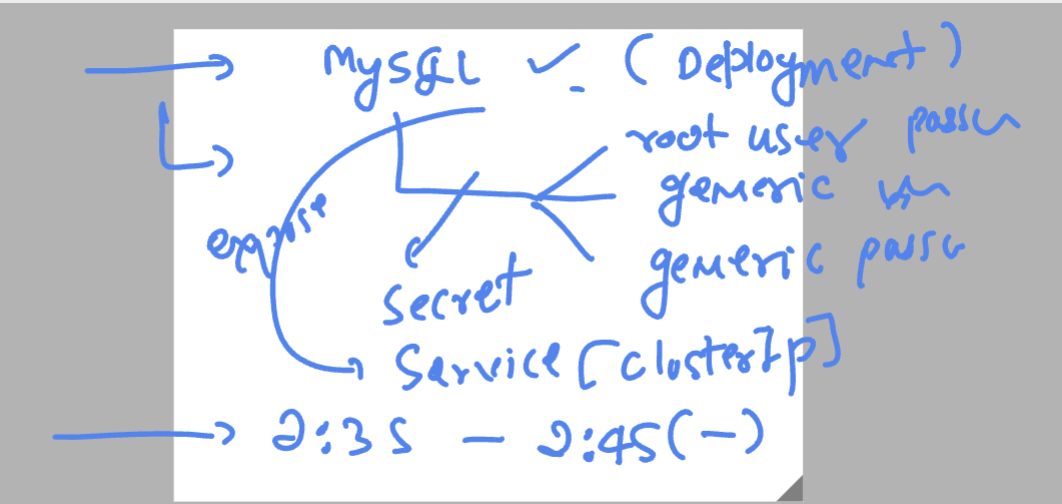 MySQL ✓ (Deployment)
root user passw
generic
expose
generic passw
secret
Service [clusterIp]
2:35 - 2:45 (-)